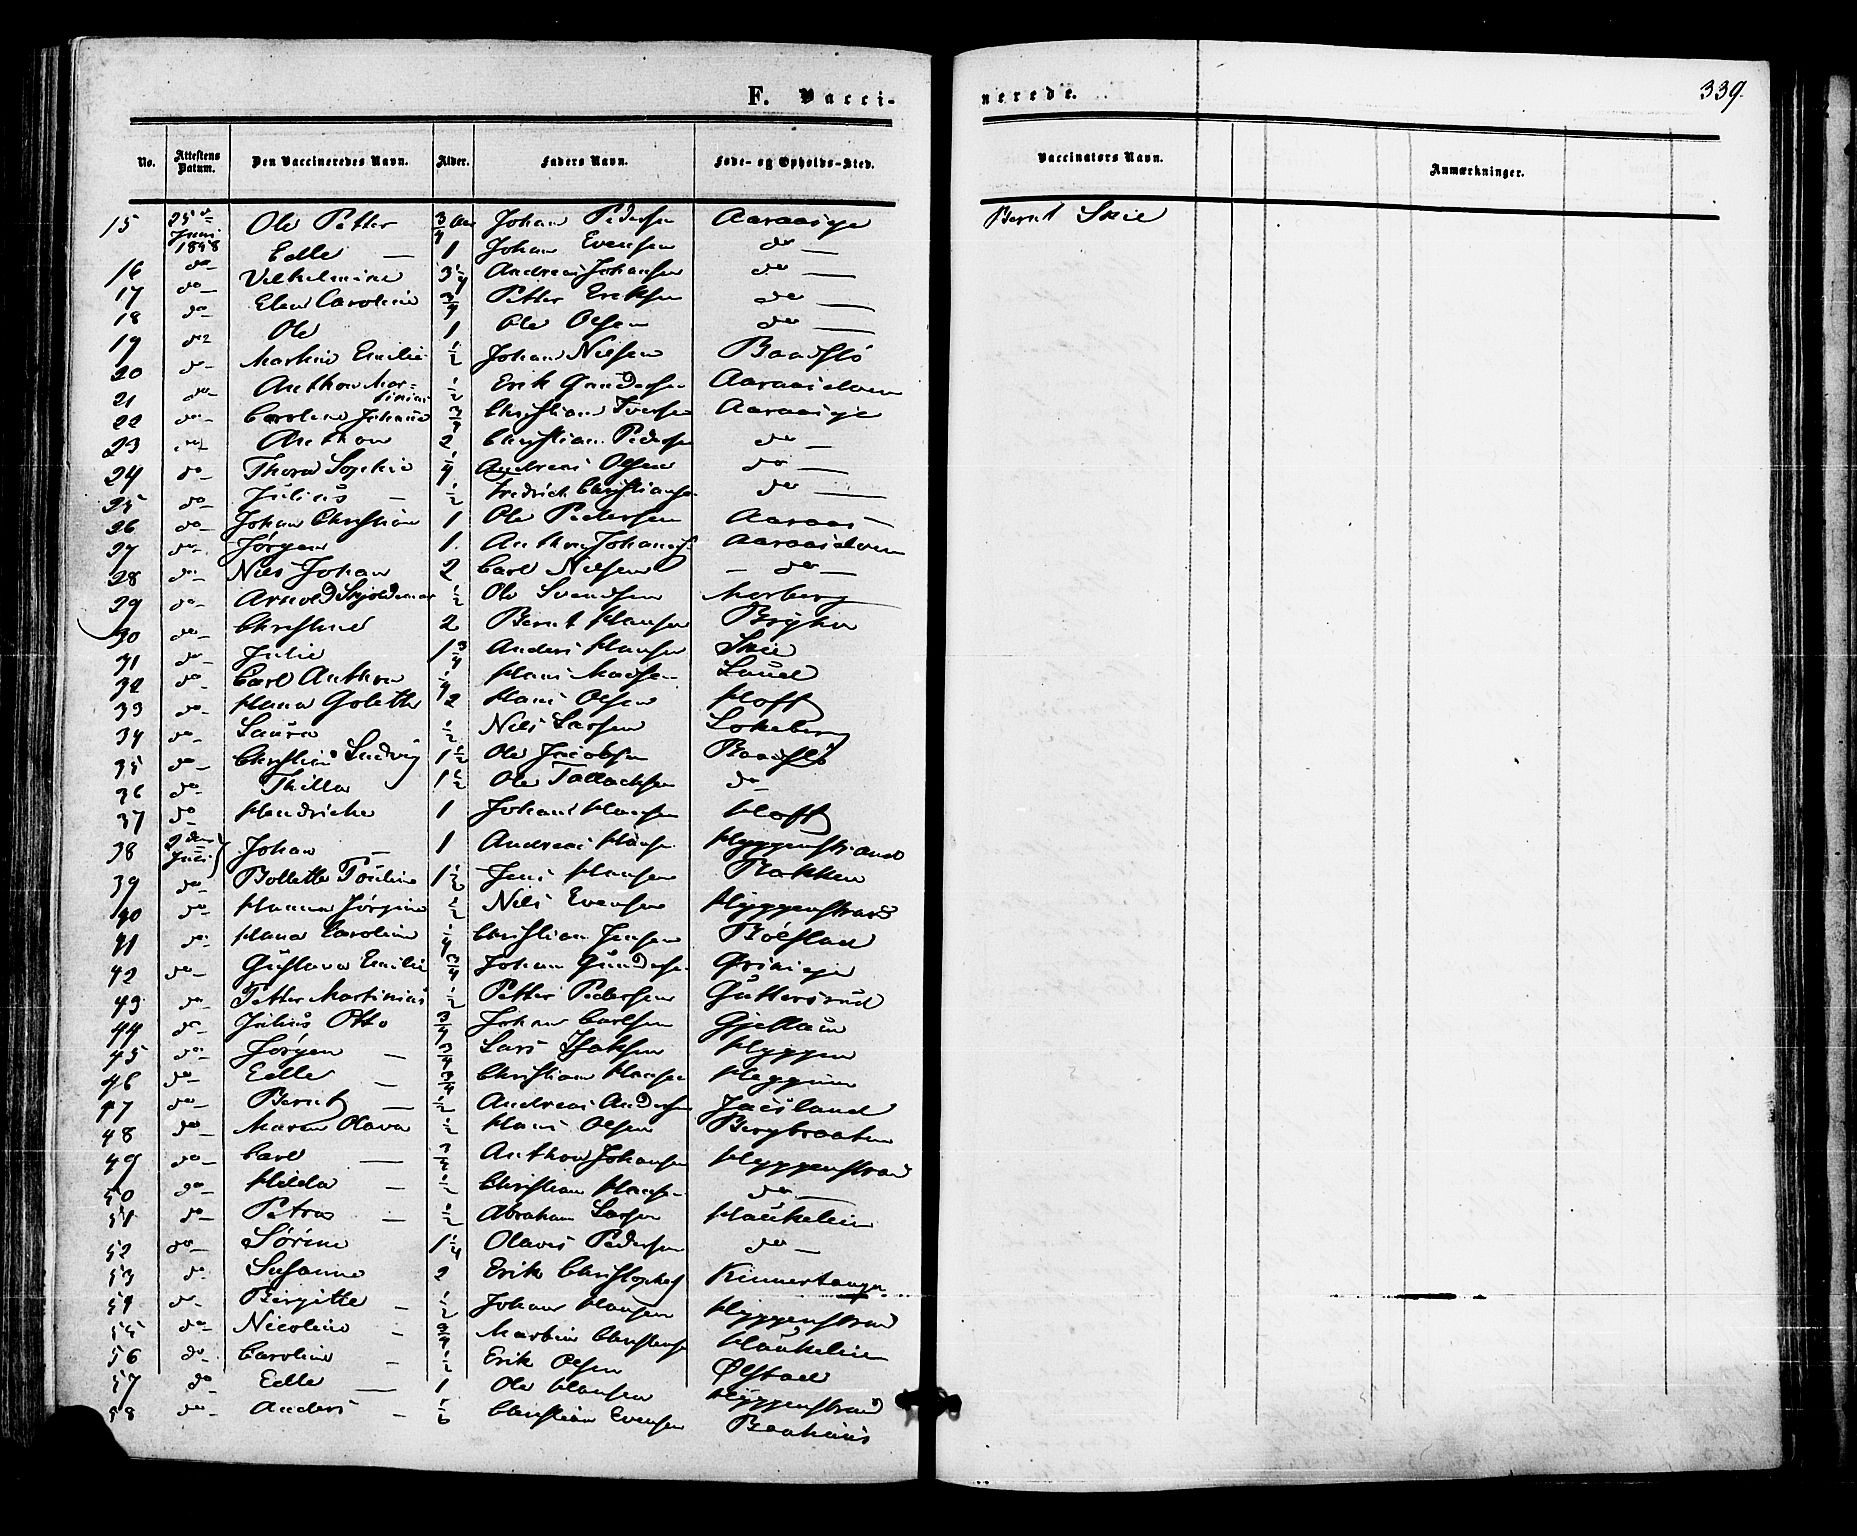 F. Vacci-
nerede.
339.
No. Attestens Datum. Den Vaccineredes Navn. Alder. Faders Navn. Føde- og Opholds-Sted. Vaccinators Navn. Anmærkninger.
15 25de Juni 1858 Ole Petter 3/4 Aar Johan Pedersen Aaraasige Bernt Skie
Edle — 1 Johan Evensen do —
16 do Vilhelmine 3 1/4 Andreas Johansen do —
17 do — Elen Caroline 3/4 Petter Eriksen do —
18 do — Ole 1 Ole Olsen do —
19 do Martin Emilie 1/2 Johan Nilsen Baadslø
20 do — Anthon Martinius 1/2 Erik Gundersen Aaraaselven
21 do — Caroline Johanne 3/4 Christian Iversen Aaraasige
22 do — Anthon 2 Christian Pedersen do —
23 do Thora Sophie 1/4 Andreas Olsen do —
24 do — Julius — 1/2 Fredrich Christiansen do —
25 do — Johan Christian 1 Ole Pedersen Aaraas —
26 do — Jørgen 1. Anthon Johans. Aaraaselven
27 do — Nils Johan 2 Carl Nilsen — do —
28 do — Arnold Skjoldemar 1/2 Ole Svendsen Morberg
29 do — Christine 2 Bernt Hansen
30 do — Julie 1 3/4 Anders Hansen Skie
31 do — Carl Anthon 1/4 Hans Madsen
32 do Hana Golette 2 Hans Olsen Hoff
33 do — Laura 1/2 Nils Larsen Lokeberg
34 do — Christian Ludvig 1 1/2 Ole Jacobsen Baadslø
35 do — Thilla 1 1/2 Ole Tollachsen do —
36 do — Hendrikke 1 Johans Hansen Hoff
37 do
38 2den Juli Johan — 1 Andreas Hansen Hyggenstrand
39 do — Bollette Pouline 1 1/2 Jens Hansen Bakken
40 do — Hanna Jørgine 1/2 Nils Evensen Hyggenstrand
41 do — Hana Caroline 1/4 Christian Jensen Bølstad
42 do — Gustava Emilie 3/4 Johan Gundersen
43 do — Petter Martinius 1/2 Petter Pedersen Guttersrud
44 do — Julius Otto 3/4 Johan Carlsen Gjellum
45 do — Jørgen — 3/4 Lars Isaksen Hyggen
46 do — Edle — 3/4 Christian Hansen Heggum
47 do — Bernt — 1/2 Andreas Andersen Jaesland
48 do — Maren Olava 1/2 Hans Olsen Bergbraaten
49 do — Carl — 3/4 Anthon Johansen Hyggenstrand
50 do — Hilda — 1/2 Christian Hansen do —
51 do — Petra — 1/2 Abraham Larsen Haukelien
52 do — Sørine 1 1/4 Olaves Pedersen do —
53 do Susanne 2 Erik Christophers. Kinnertangen
54 do — Birgitte — 1/2 Johan Hansen Hyggenstrand
55 do — Nicoline — 3/4 Martin Christensen Haukelien
56 do — Caroline — 1/2 Erik Olsen Ølstad
57 do Edle — 1 Ole Hansen Hyggenstrand
58 do — Anders — 1/2 Christian Evensen Baahuus